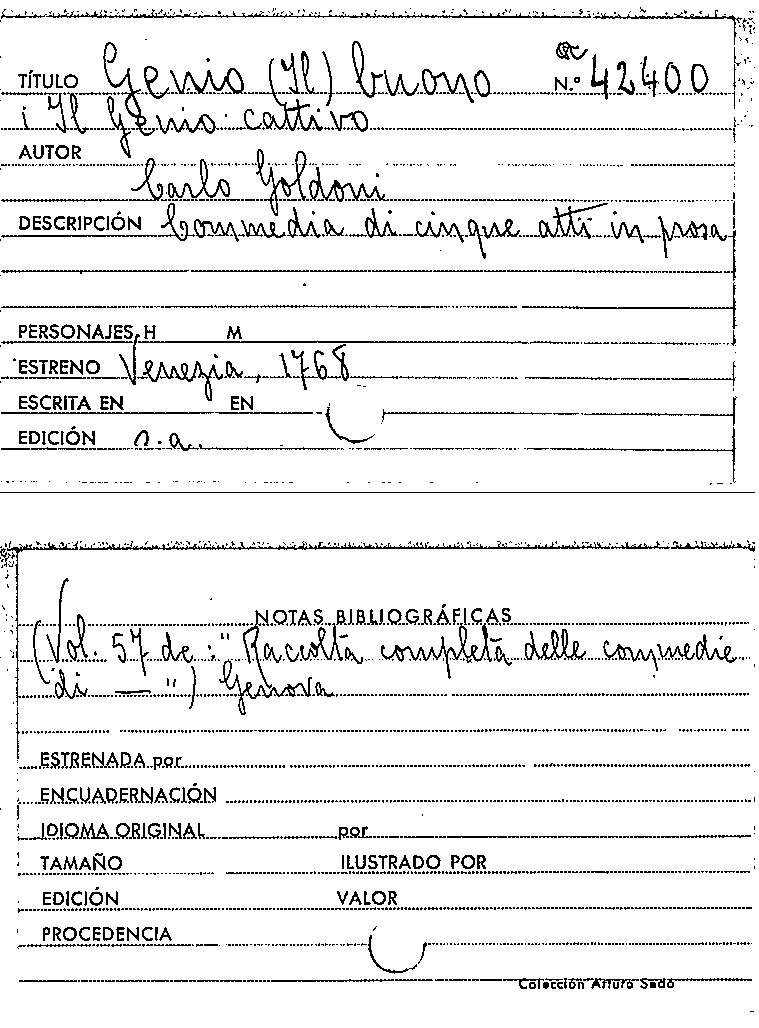 TÍTULO Genio (Il) buono N.º 42400
i Il Genio cattivo
AUTOR
Carlo Goldoni
DESCRIPCIÓN Commedia di cinque atti in prosa
PERSONAJES, H M
ESTRENO Venezia, 1768
ESCRITA EN EN
EDICIÓN s.a.
NOTAS BIBLIOGRÁFICAS
(Vol. 57 de: "Raccolta completa delle commedie
di — ") Genova
ESTRENADA por
ENCUADERNACIÓN
IDIOMA ORIGINAL por
TAMAÑO ILUSTRADO POR
EDICIÓN VALOR
PROCEDENCIA
Colección Arturo Sedó